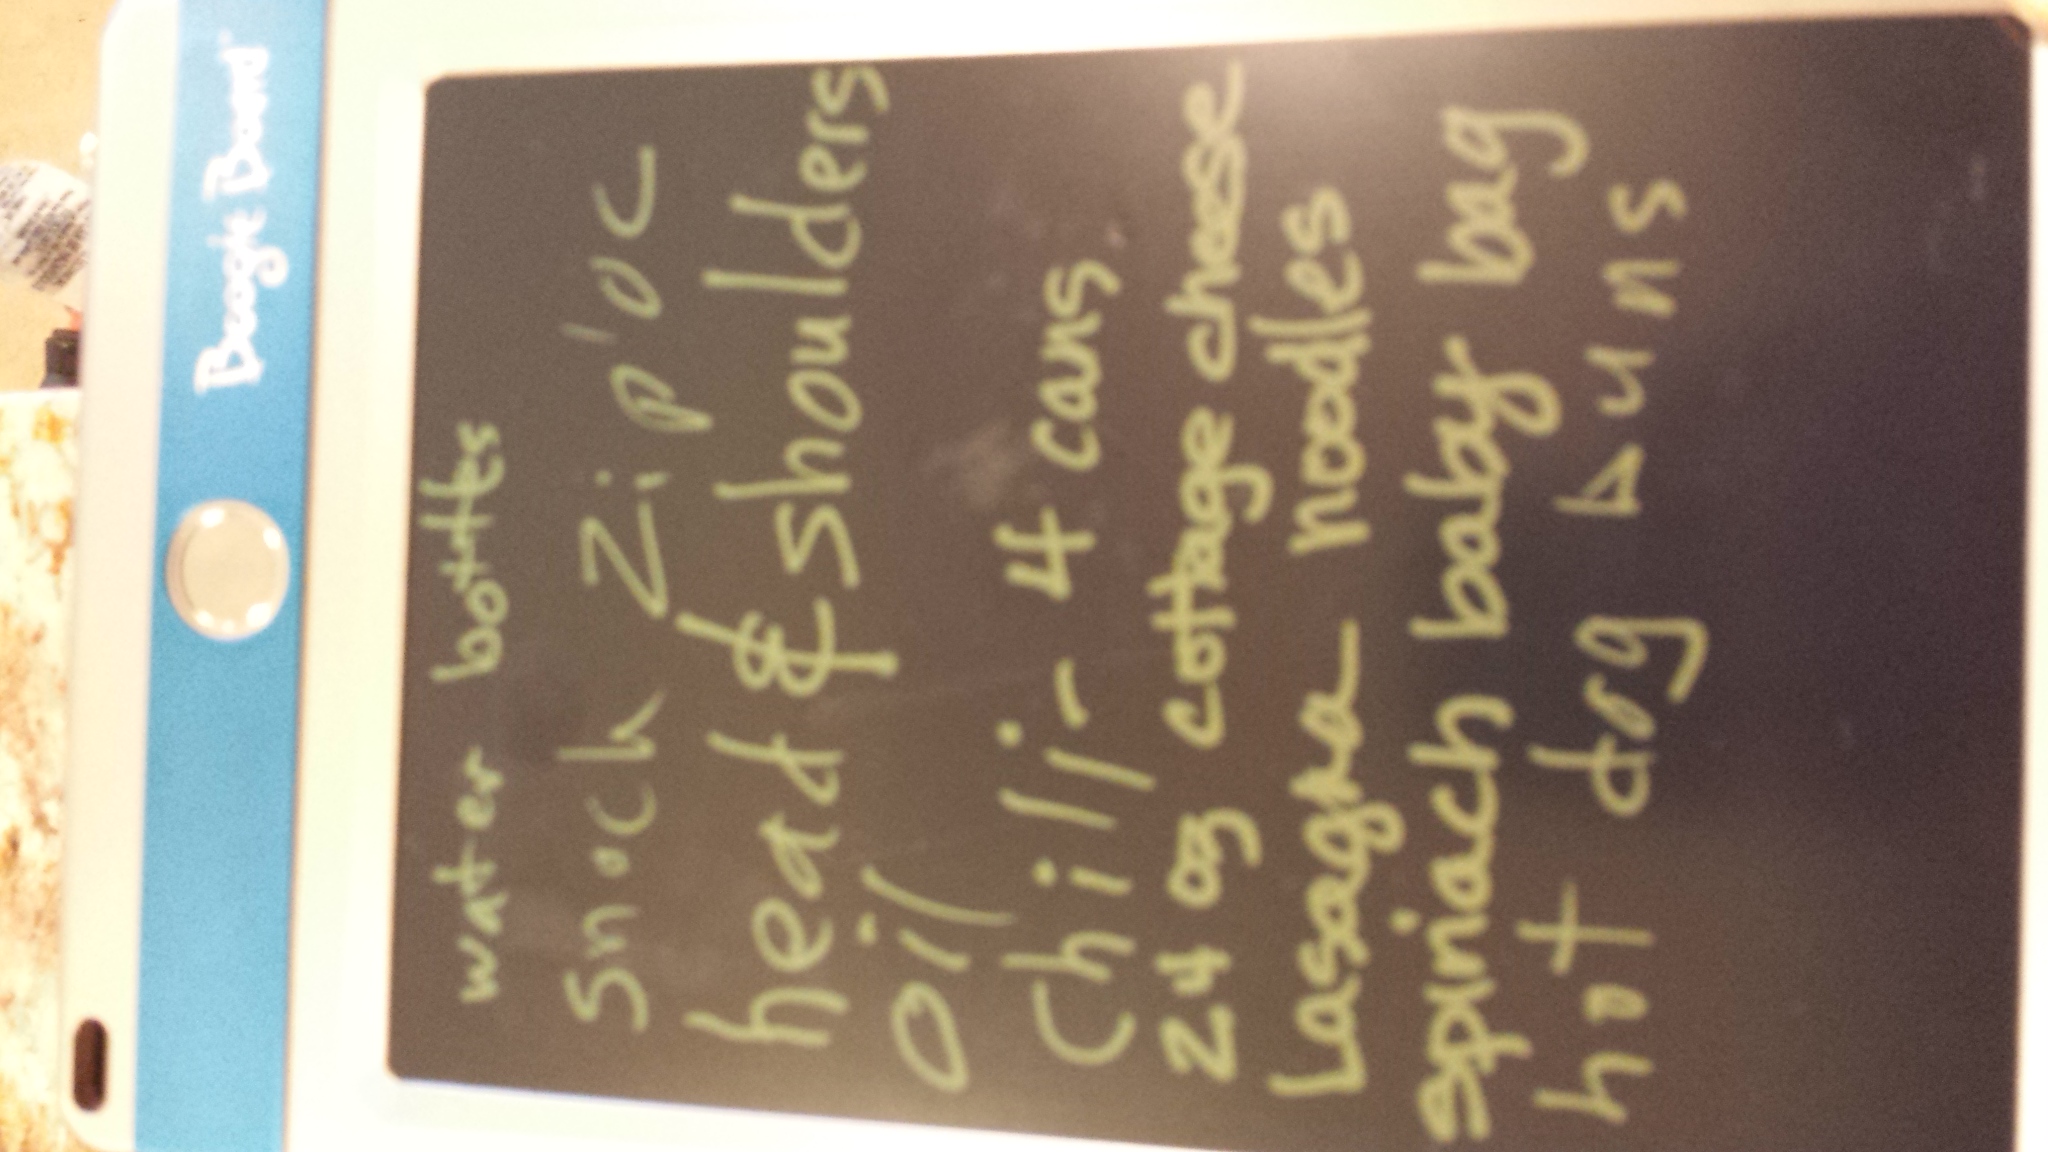 Boogie Board
water bottles
snack Ziploc
head & shoulders
oil
Chilli - 4 cans
24 oz cottage cheese
Lasagna noodles
spinach baby bag
hot dog buns